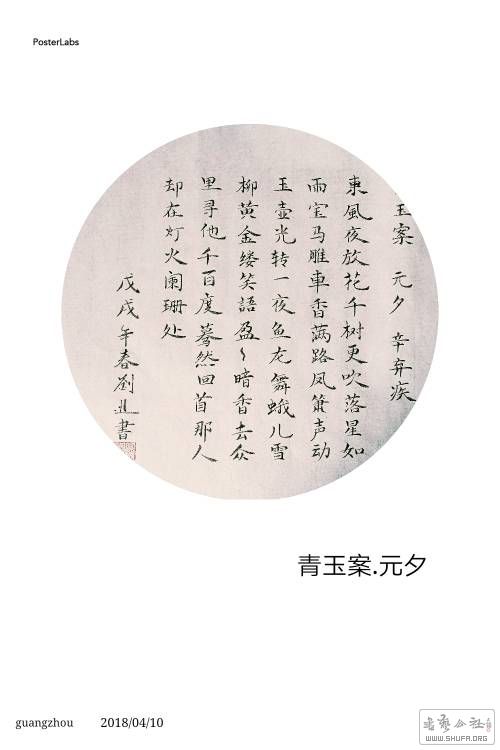 PosterLabs
玉案 元夕 辛弃疾
東風夜放花千树更吹落星如
雨宝马雕車香满路凤箫声动
玉壶光转一夜鱼龙舞蛾儿雪
柳黄金缕笑語盈〻暗香去众
里寻他千百度蓦然回首那人
却在灯火阑珊处
戊戌年春劉 書
青玉案.元夕
guangzhou 2018/04/10
WWW.SHUFA.ORG